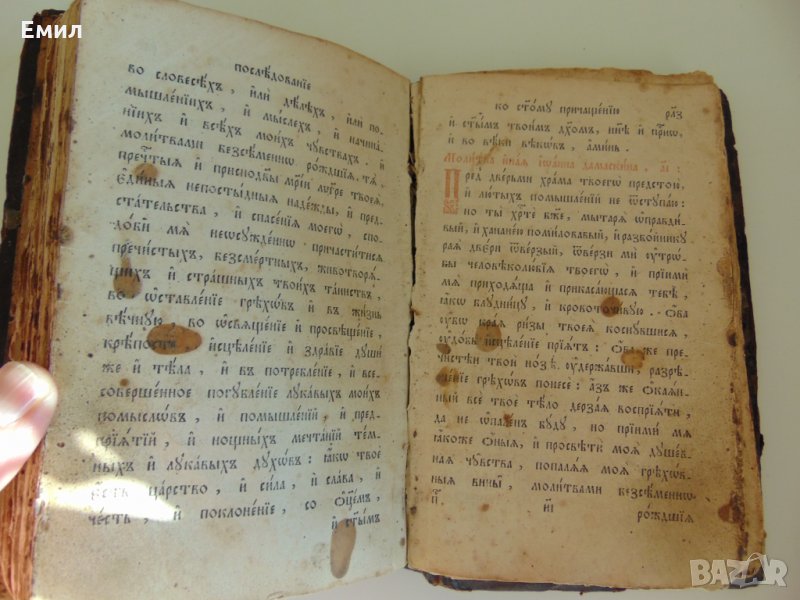 Емил
послѣдованїе
во словесѣхъ , и҆лѝ дѣлѣхъ , и҆лѝ по-
мышленїихъ , и҆ мыслехъ , и҆ начина-
нїихъ и҆ всѣхъ мои́хъ чувствахъ . и҆
молитвами безсѣменнѡ рождшїѧ . тѧ̀ .
пречⷭ҇тыѧ и҆ приснодв҃ы мр҃іи мт҃ре твоеѧ̀ ,
є҆ди́ныѧ непостыдныѧ надежды , и҆ пред-
ста́тельства , и҆ спасенїѧ моегѡ̀ , спо-
до́би мѧ̀ неѡсужденнѡ причаститисѧ
пречи́стыхъ , безсме́ртныхъ , животворѧ-
щихъ и҆ страшныхъ твои́хъ таинствъ ,
во ѡ҆ставле́нїе грѣхѡ́въ и҆ въ жизнь
вѣ́чную , во ѡ҆сщ҃енїе и҆ просвѣщенїе ,
крѣпость , и҆сцѣленїе и҆ здравїе души́
же и҆ тѣла , и҆ въ потребленїе , и҆ все-
соверше́нное погубленїе лука́выхъ мои́хъ
по́мыслѡвъ , и҆ помышленїй , и҆ пред-
прїѧтїй , и҆ нощны́хъ мечтанїй тем-
ныхъ и҆ лука́выхъ духѡвъ : ꙗ҆́кѡ твоѐ
є҆́сть ца́рство , и҆ си́ла , и҆ сла́ва , и҆
че́сть , и҆ поклоне́нїе , со ѻ҆ц҃емъ ,
и҆ ст҃ымъ
ко ст҃ому причащенїю
и҆ ст҃ымъ твоимъ дх҃омъ , нн҃ѣ и҆ при́снѡ ,
и҆ во вѣки вѣкѡвъ , а҆минь .
Молитва и҆наѧ і҆ѡанна дамаскина . д҃і :
Пред̾ дверьми храма твоегѡ̀ предстою̀ ,
и҆ лютыхъ помышленїй не ѿступаю :
но ты̀ хрⷭ҇тѐ бж҃е , мытарѧ ѡ҆правди-
вый , и҆ хананею помиловавый , и҆ разбойнику
раѧ̀ двери ѿверзый , ѿверзи ми ѹ҆трѡ-
бы человѣколюбїѧ твоегѡ̀ , и҆ прїими
мѧ̀ приходѧща и҆ прикасающасѧ тебѣ ,
ꙗ҆кѡ блудницу , и҆ кровоточивую . ѻ҆ва
ѹ҆бѡ краѧ ри́зы твоеѧ̀ коснувшисѧ ,
ѹ҆добь и҆сцѣленїе прїѧтъ : ѻ҆ва же пре-
чистѣи твои̑ нозѣ̀ ѹ҆державши , разрѣ-
шенїе грѣхѡвъ понесѐ : а҆зъ же ѻ҆каѧн-
ный всѐ твоѐ тѣло дерзаѧ воспрїѧти ,
да не ѡ҆паленъ бу́ду , но прїими мѧ̀
ꙗ҆коже ѻ҆ныѧ , и҆ просвѣти моѧ̑ душев-
наѧ чувства , попалѧѧ моѧ̑ грѣхѡв-
ныѧ вины̑ , молитвами безсѣменнѡ
п҃ и҃і рождшїѧ
BAZAR